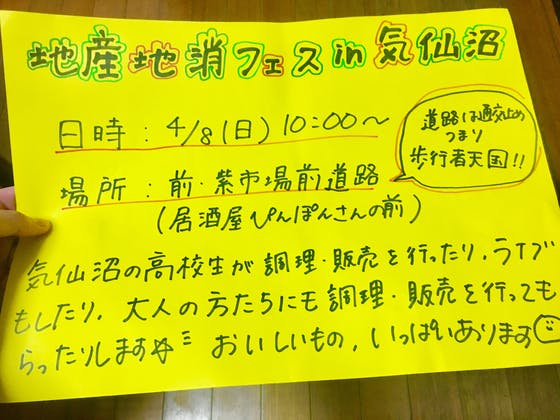 地産地消フェスin気仙沼
日時：4/8(日) 10:00～
道路は通行止め
つまり
歩行者天国!!
場所：前・紫市場前道路
(居酒屋ぴんぽんさんの前)
気仙沼の高校生が調理・販売を行ったり、ライブ
もしたり、大人の方たちにも調理・販売を行っても
らったりします おいしいもの、いっぱいあります